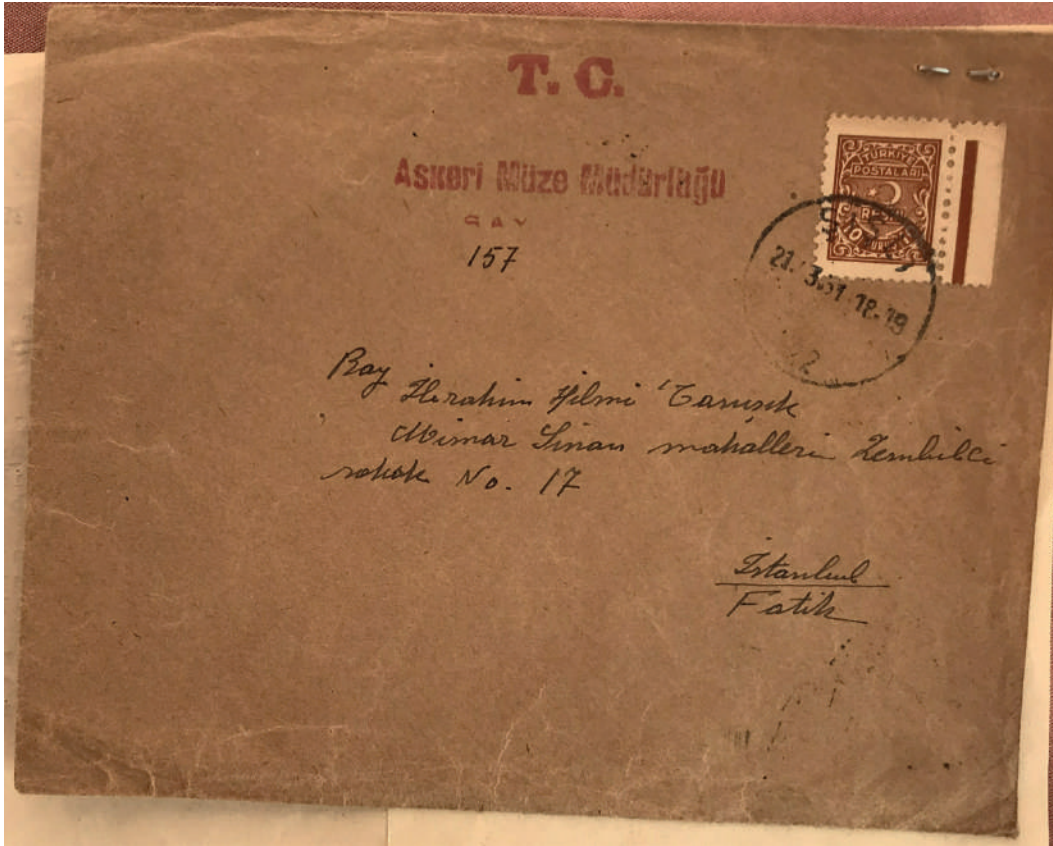 T. C.
Askeri Müze Müdürlüğü
SAY
157
TÜRKİYE
POSTALARI
RESMİ
10
21. 3.51.18-19
2
Bay
İbrahim Hilmi Tanışık
Mimar Sinan mahallesi Zembilci
sokak No. 17
İstanbul
Fatih